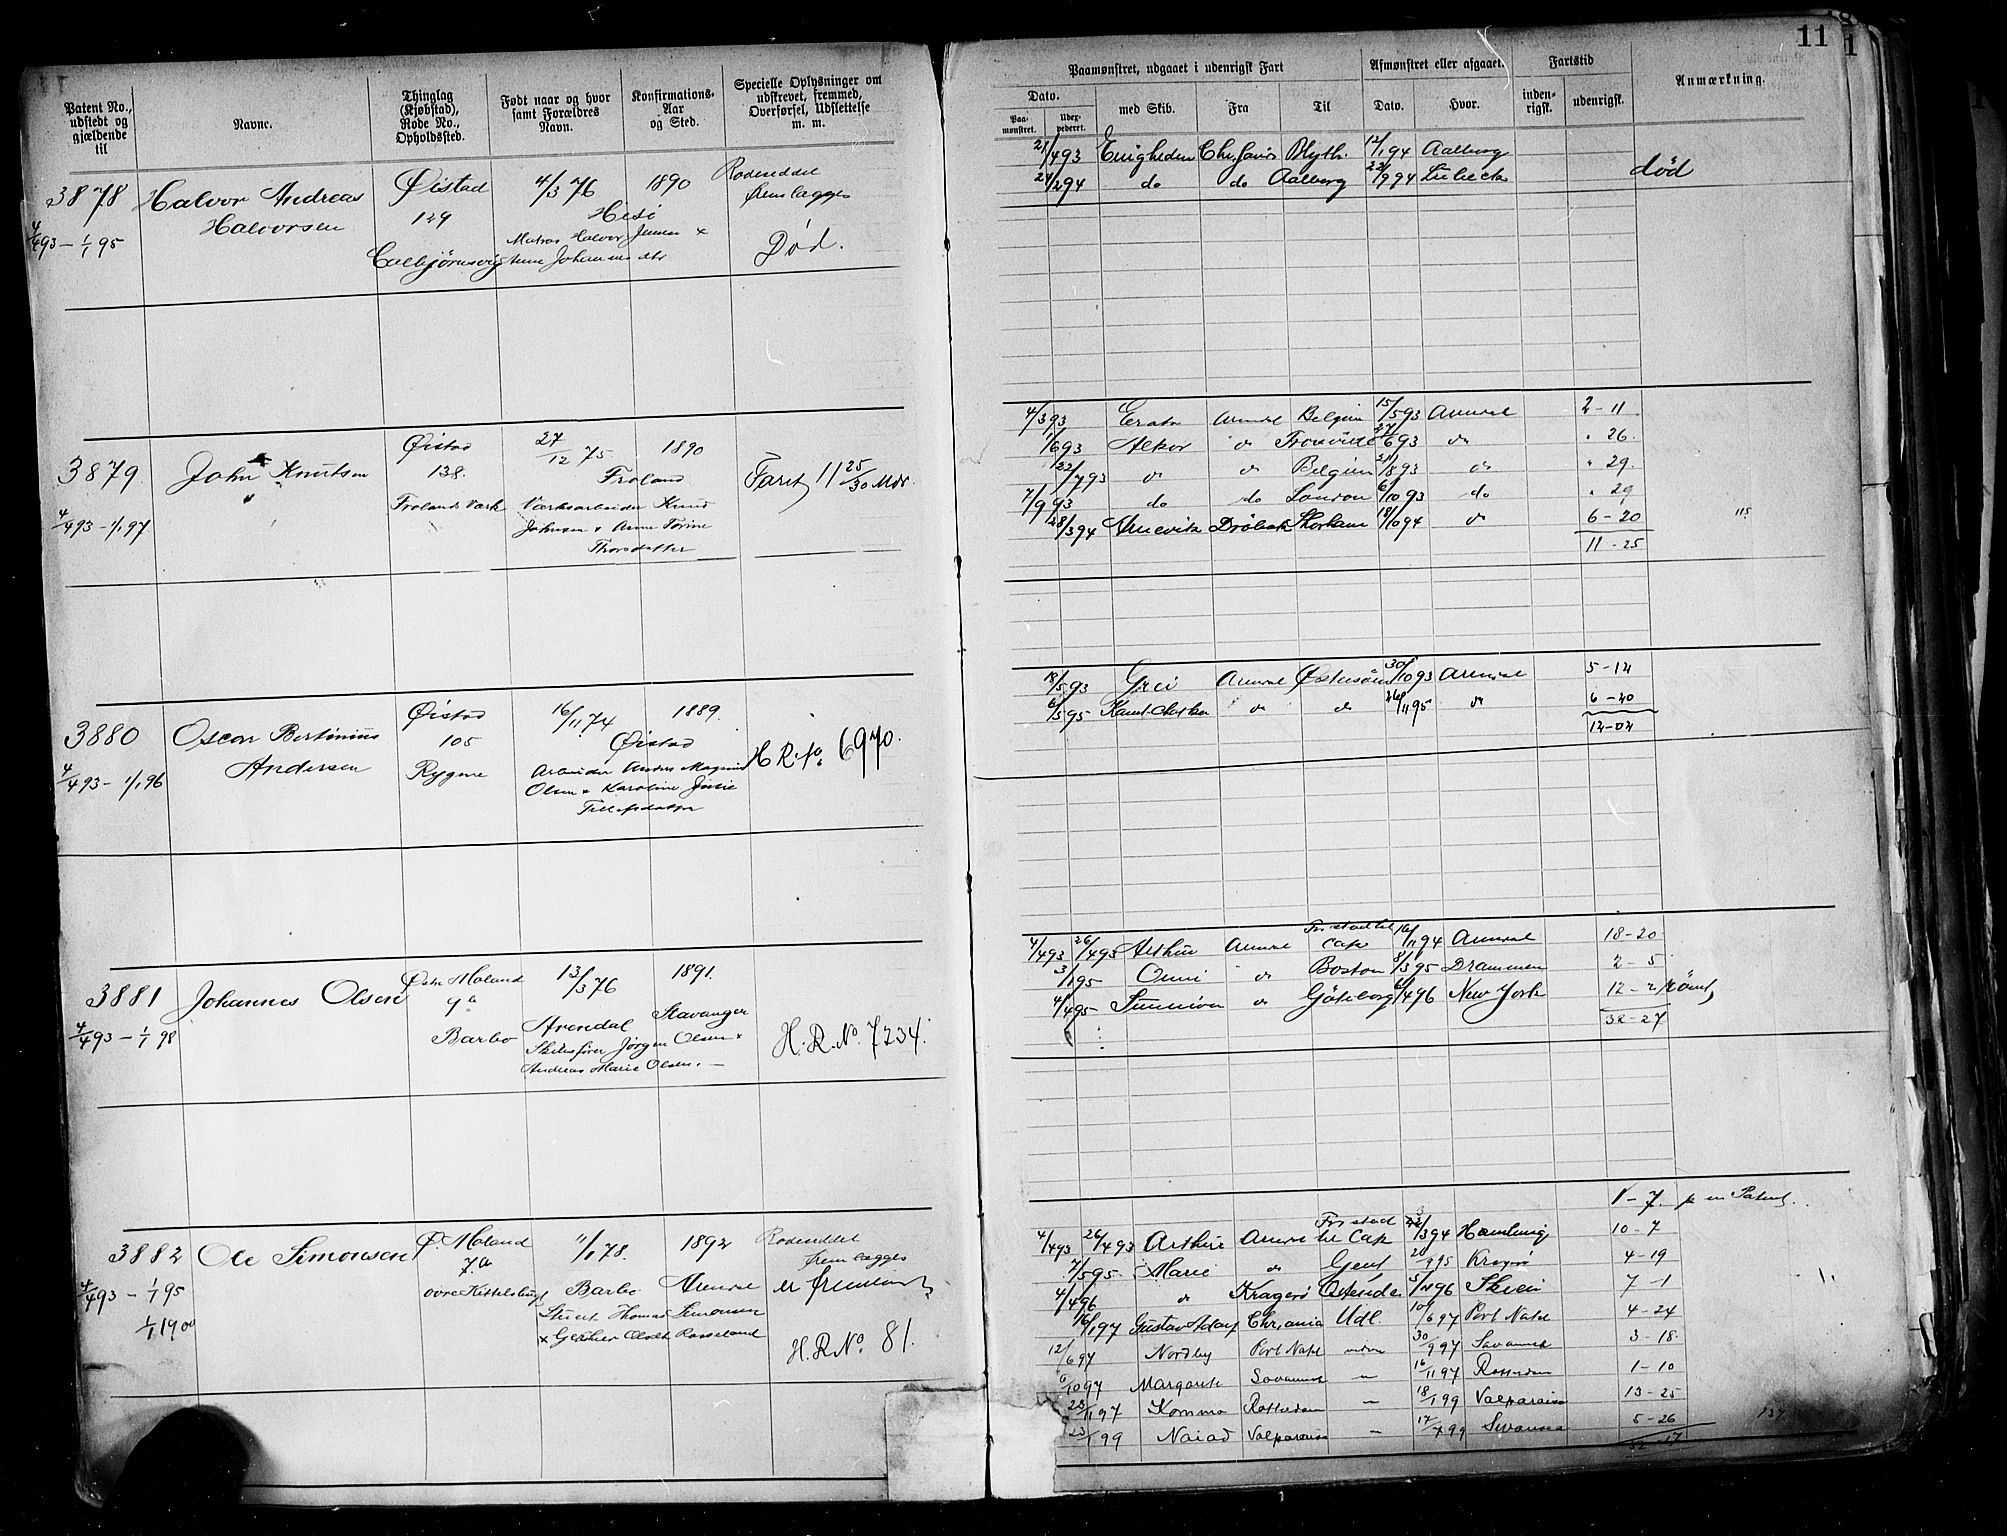 11
Patent No., udstedt og gjældende til
Navne.
Thinglag (Kjøbstad), Rode No., Opholdssted.
Født naar og hvor samt Forældres Navn.
Konfirmations-Aar og Sted.
Specielle Oplysninger om udskrevet, fremmed, Overførsel, Udslettelse m. m.
Paamønstret, udgaaet i udenrigsk Fart
Dato.
Paa-mønstret.
Udex-pederet.
med Skib.
Fra
Til
Afmønstret eller afgaaet.
Dato.
Hvor.
Fartstid
inden-rigsk.
udenrigsk.
Anmærkning.
3878
4/4 93 – 1/1 95
Halvor Andreas
Halvorsen
Øistad
129
4/3 76
Hesø
Matros Halvor Jensen x
1890
Rodeseddel
fremlægges
Død.
21/4 93 Enigheden Blyth 12/1 94 Aalborg
21/2 94 do do Aalborg 22/9 94 Lübeck
død
3879
4/4 93 – 1/1 97
John Knutsen
Øistad
138.
Frolands Værk
27/12 75
Froland
Værksarbeider Knud
Johnsen x Anne
Thorsdatter
1890
Faret 11 25/30 Mdr.
4/3 93 Erato Arendal Belgien 15/5 93 Arendal 2-11
1/6 93 Alkor do 27/6 93 do " 26.
22/7 93 do do Belgien 21/8 93 do " 29.
7/9 93 do do London 6/10 93 do " 29
28/3 94 Drøbak 18/10 94 do 6-20
11-25
3880
4/4 93 – 1/1 96
Oscar Bertinius
Andersen
Øistad
105
Rygene
16/11 74
Øistad
Arbeider Anders
Olsen x Karoline
Tellefsdatter
1889.
H. R. No. 6970.
18/5 93 Grei Arendal 30/10 93 Arendal 5-12
6/5 95 do do 26/11 95 do 6-20
12-02
3881
4/4 93 – 1/1 98
Johannes Olsen
Østre Moland
9a
Barbo
13/3 76
Arendal
Skibsfører Jørgen Olsen x
Andrea Marie Olsen. –
1891.
Stavanger
H. R. No. 7234.
4/4 93 26/4 93 Arthur Arendal Fr.stad til Cap 16/11 94 Arendal 18-20
3/1 95 do Boston 8/3 95 Drammen 2-5
4/4 95 do Göteborg 4/4 96 New York 12-2 Rømt
32-27
3882
4/4 93 – 1/1 95
1/1 1900
Ole Simonsen
Ø. Moland
7.a
1/1 78.
Barbo
Thomas Simonsen
x Rosseland
1892
Arendal
Rodeseddel
fremlægges
er fremlagt
H. R. No. 81.
1-7. pr en Patent.
4/4 93 26/4 93 Arthur Arendal Fr.stad til Cap 3/3 94 Hamburg 10-7
7/5 95 Marie do Gent 20/9 95 Kragerø 4-19
4/4 96 do Kragerø Ostende 5/12 96 Skien 7-1
16/1 97 Gustav Adolf Chr.ania Udl. 10/6 97 Port Natal 4-24
12/6 97 Nordby Port Natal 30/9 97 Savannah 3-18
6/10 97 Margarete Savannah – 16/11 97 Rotterdam 1-10
23/11 97 Komma Rotterdam – 18/1 99 Valparaiso 13-25
23/1 99 Naiad Valparaiso – 17/7 99 Swansea 5-26
52-17